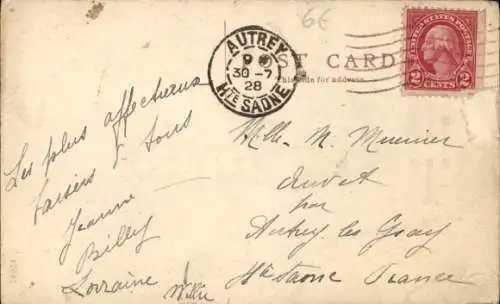 6€
POST CARD
This side for address
AUTREY
9
30 - 7
28
HTE SAONE
UNITED STATES POSTAGE
2 2
CENTS
Les plus affectueux
baisers à tous
Jeanne
Billy
Lorraine
Willie
Mlle. M. Munier
par
Autrey les Gray
Hte Saone France